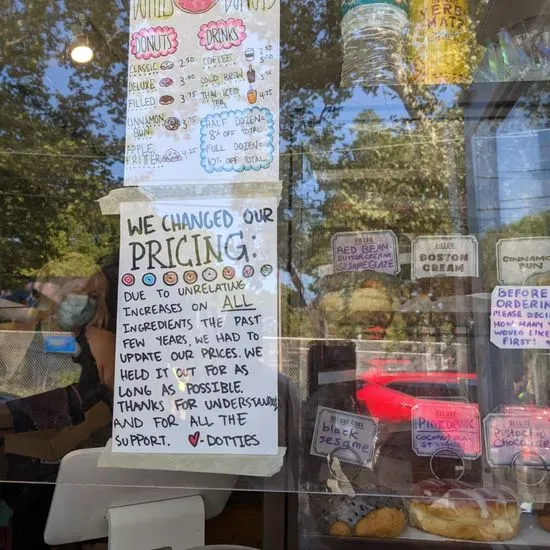 DOTTIES DONUTS
DONUTS
CLASSIC 2.50
DELUXE 3.00
FILLED 3.75
CINNAMON BUN 3.75
APPLE FRITTER 4.25
DRINKS
COFFEE 2.50
COLD BREW
THAI ICED TEA 4.25
HALF DOZEN=
8% OFF TOTAL
FULL DOZEN=
10% OFF TOTAL
WE CHANGED OUR
PRICING:
DUE TO UNRELATING
INCREASES ON ALL
INGREDIENTS THE PAST
FEW YEARS, WE HAD TO
UPDATE OUR PRICES. WE
HELD IT OUT FOR AS
LONG AS POSSIBLE.
THANKS FOR UNDERSTANDING
AND FOR ALL THE
SUPPORT. ♥ DOTTIES
YERB
MATE
FILLED
RED BEAN
BUTTERCREAM
SESAME GLAZE
FILLED
BOSTON
CREAM
CINNAMON
BUN
BEFORE
ORDERING
PLEASE DECI
HOW MANY
WOULD LIKE
FIRST!
DELUXE CAKE
black
sesame
DELUXE
PINK DRINK
coconut
DELUXE
Pistachio
Chocolate